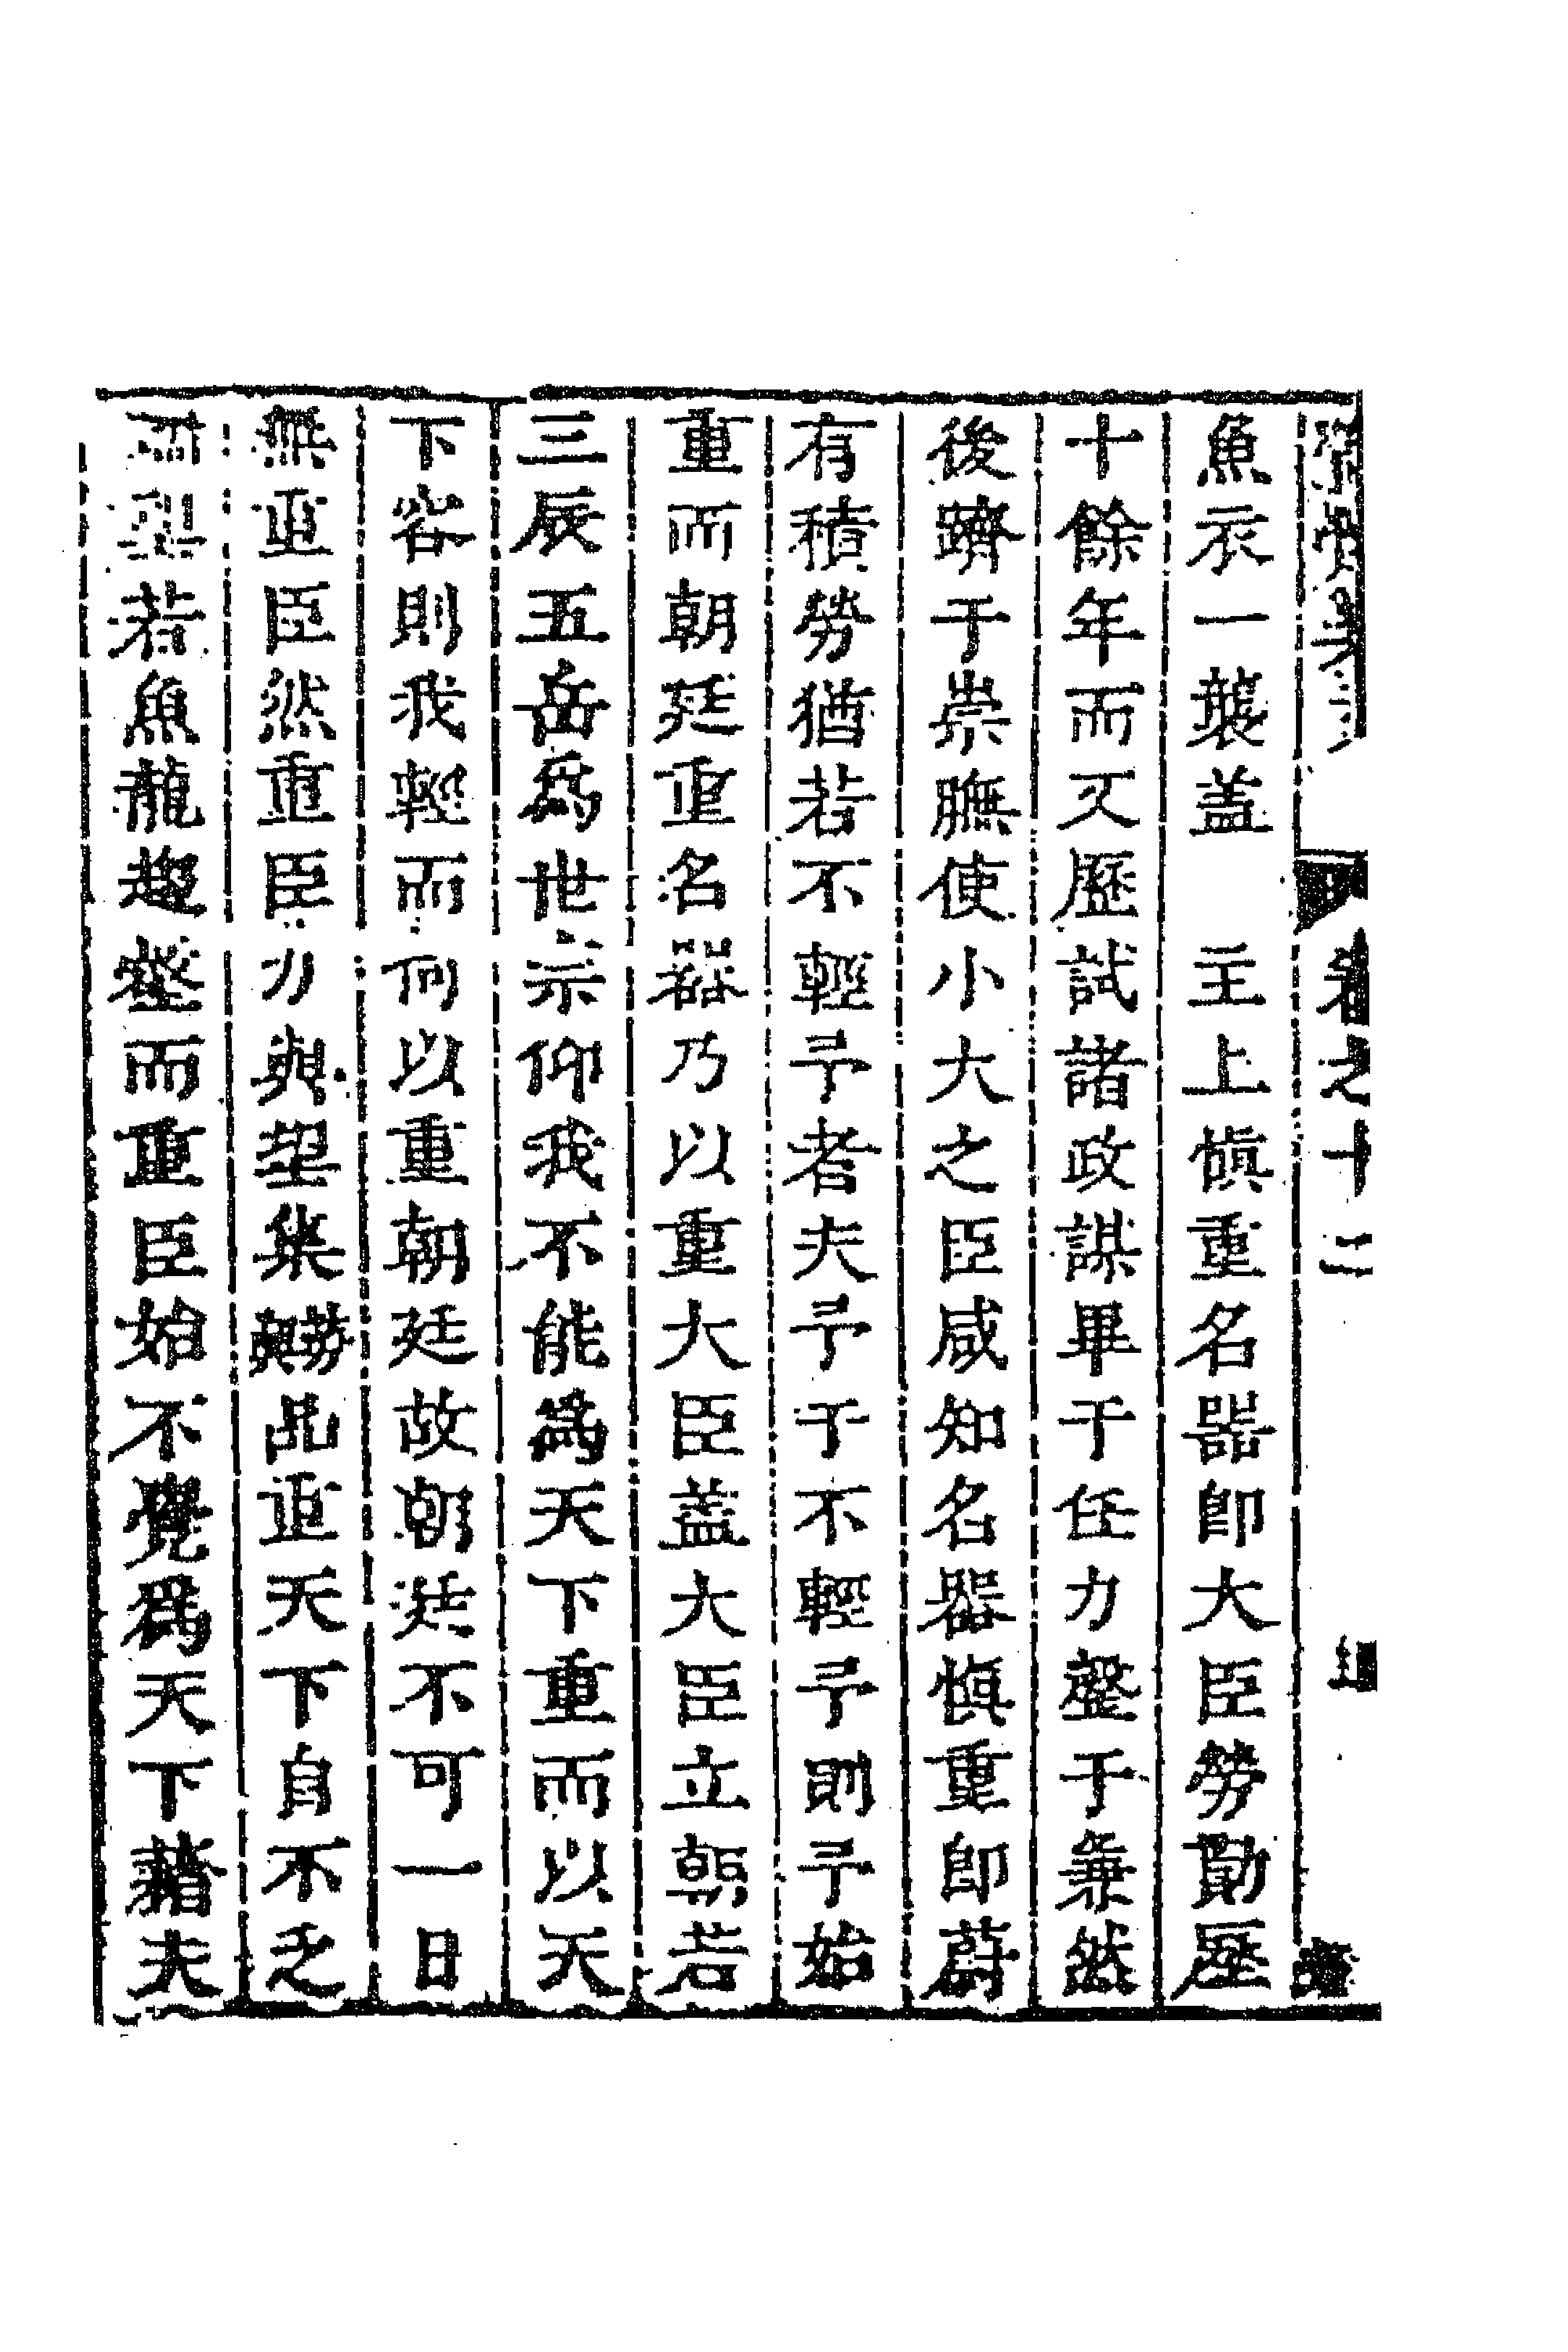 卷之十二
魚衣一襲盖　主上慎重名器即大臣勞勩歷
十餘年而又歷試諸政謀畢于任力整于兼然
後躋于崇膴使小大之臣咸知名器慎重即蔚
有積勞猶若不輕予者夫予于不輕予則予始
重而朝廷重名器乃以重大臣盖大臣立朝若
三辰五岳為世宗仰我不能為天下重而以天
下容則我輕而何以重朝廷故朝廷不可一日
無重臣然重臣力與望集勝品重天下自不乏
而望若魚龍趨壑而重臣始不覺為天下藉夫